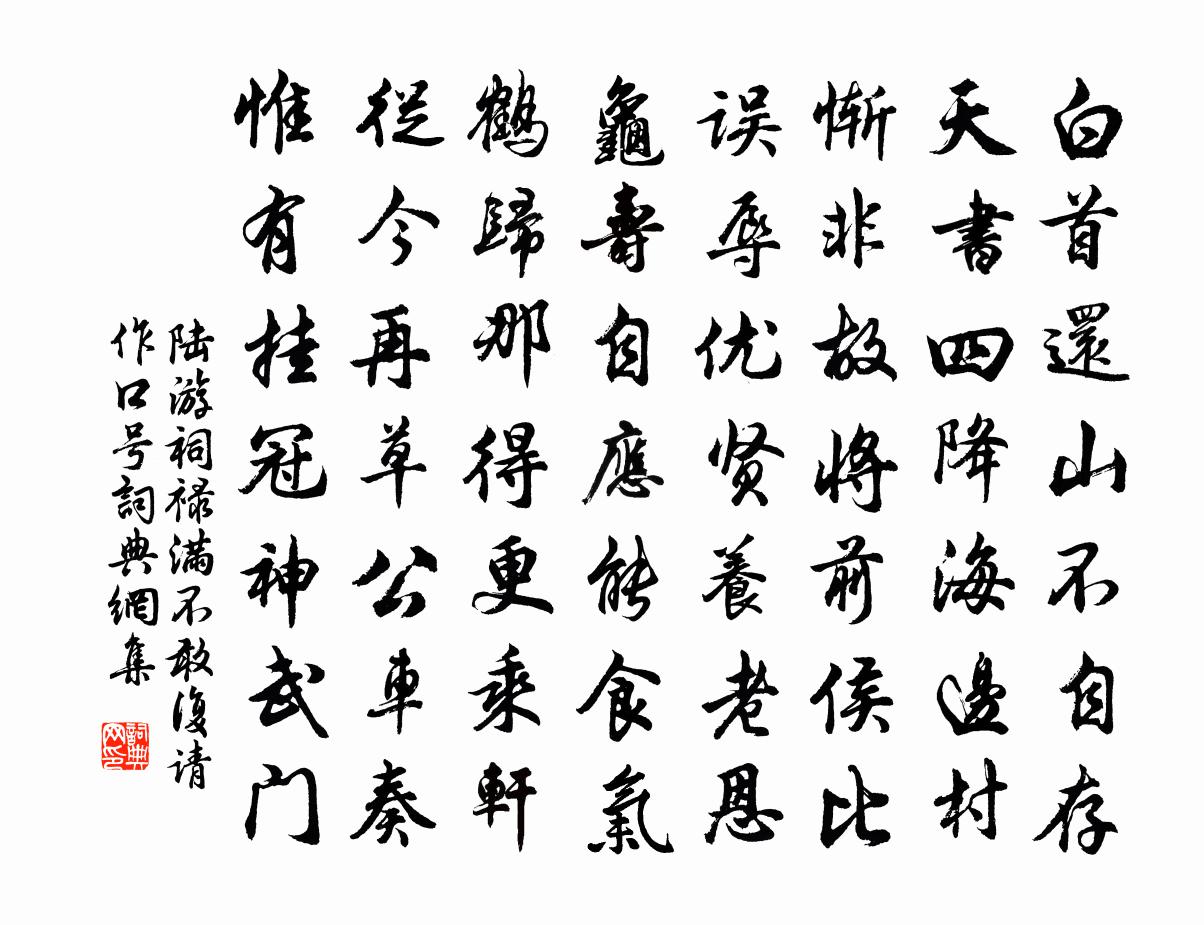 白首還山不自存
天書四降海邊村
惭非故將前侯比
误辱优贤養老恩
龜壽自應能食氣
鶴歸那得更乘軒
從今再草公車奏
惟有挂冠神武门
陆游祠禄满不敢復请
作口号詞典網集
詞典网印